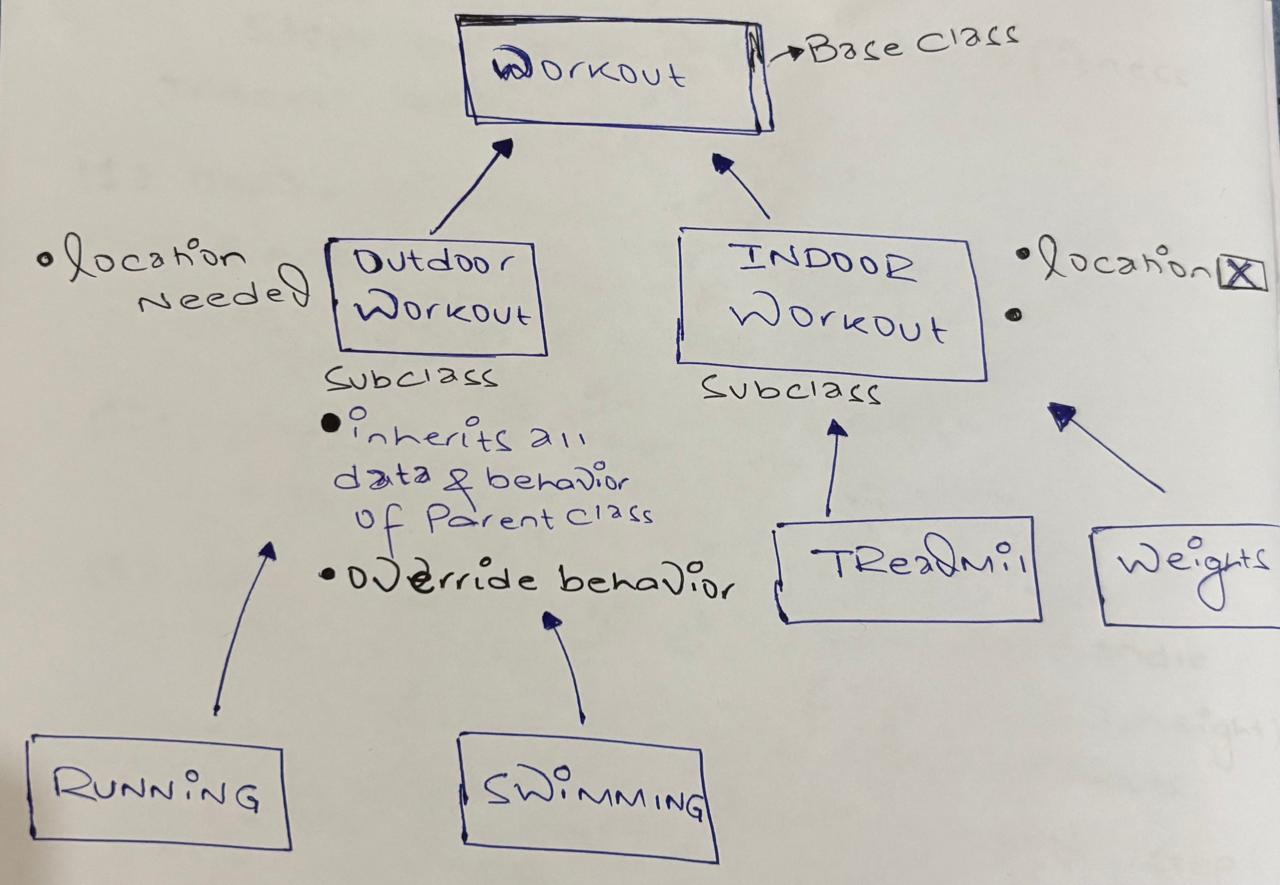 Workout
Base Class
location
Needed
Outdoor
Workout
Subclass
inherits all
data & behavior
of Parent class
override behavior
INDOOR
Workout
location X
Subclass
TReadMil
Weights
RUNNiNG
SWiMMING